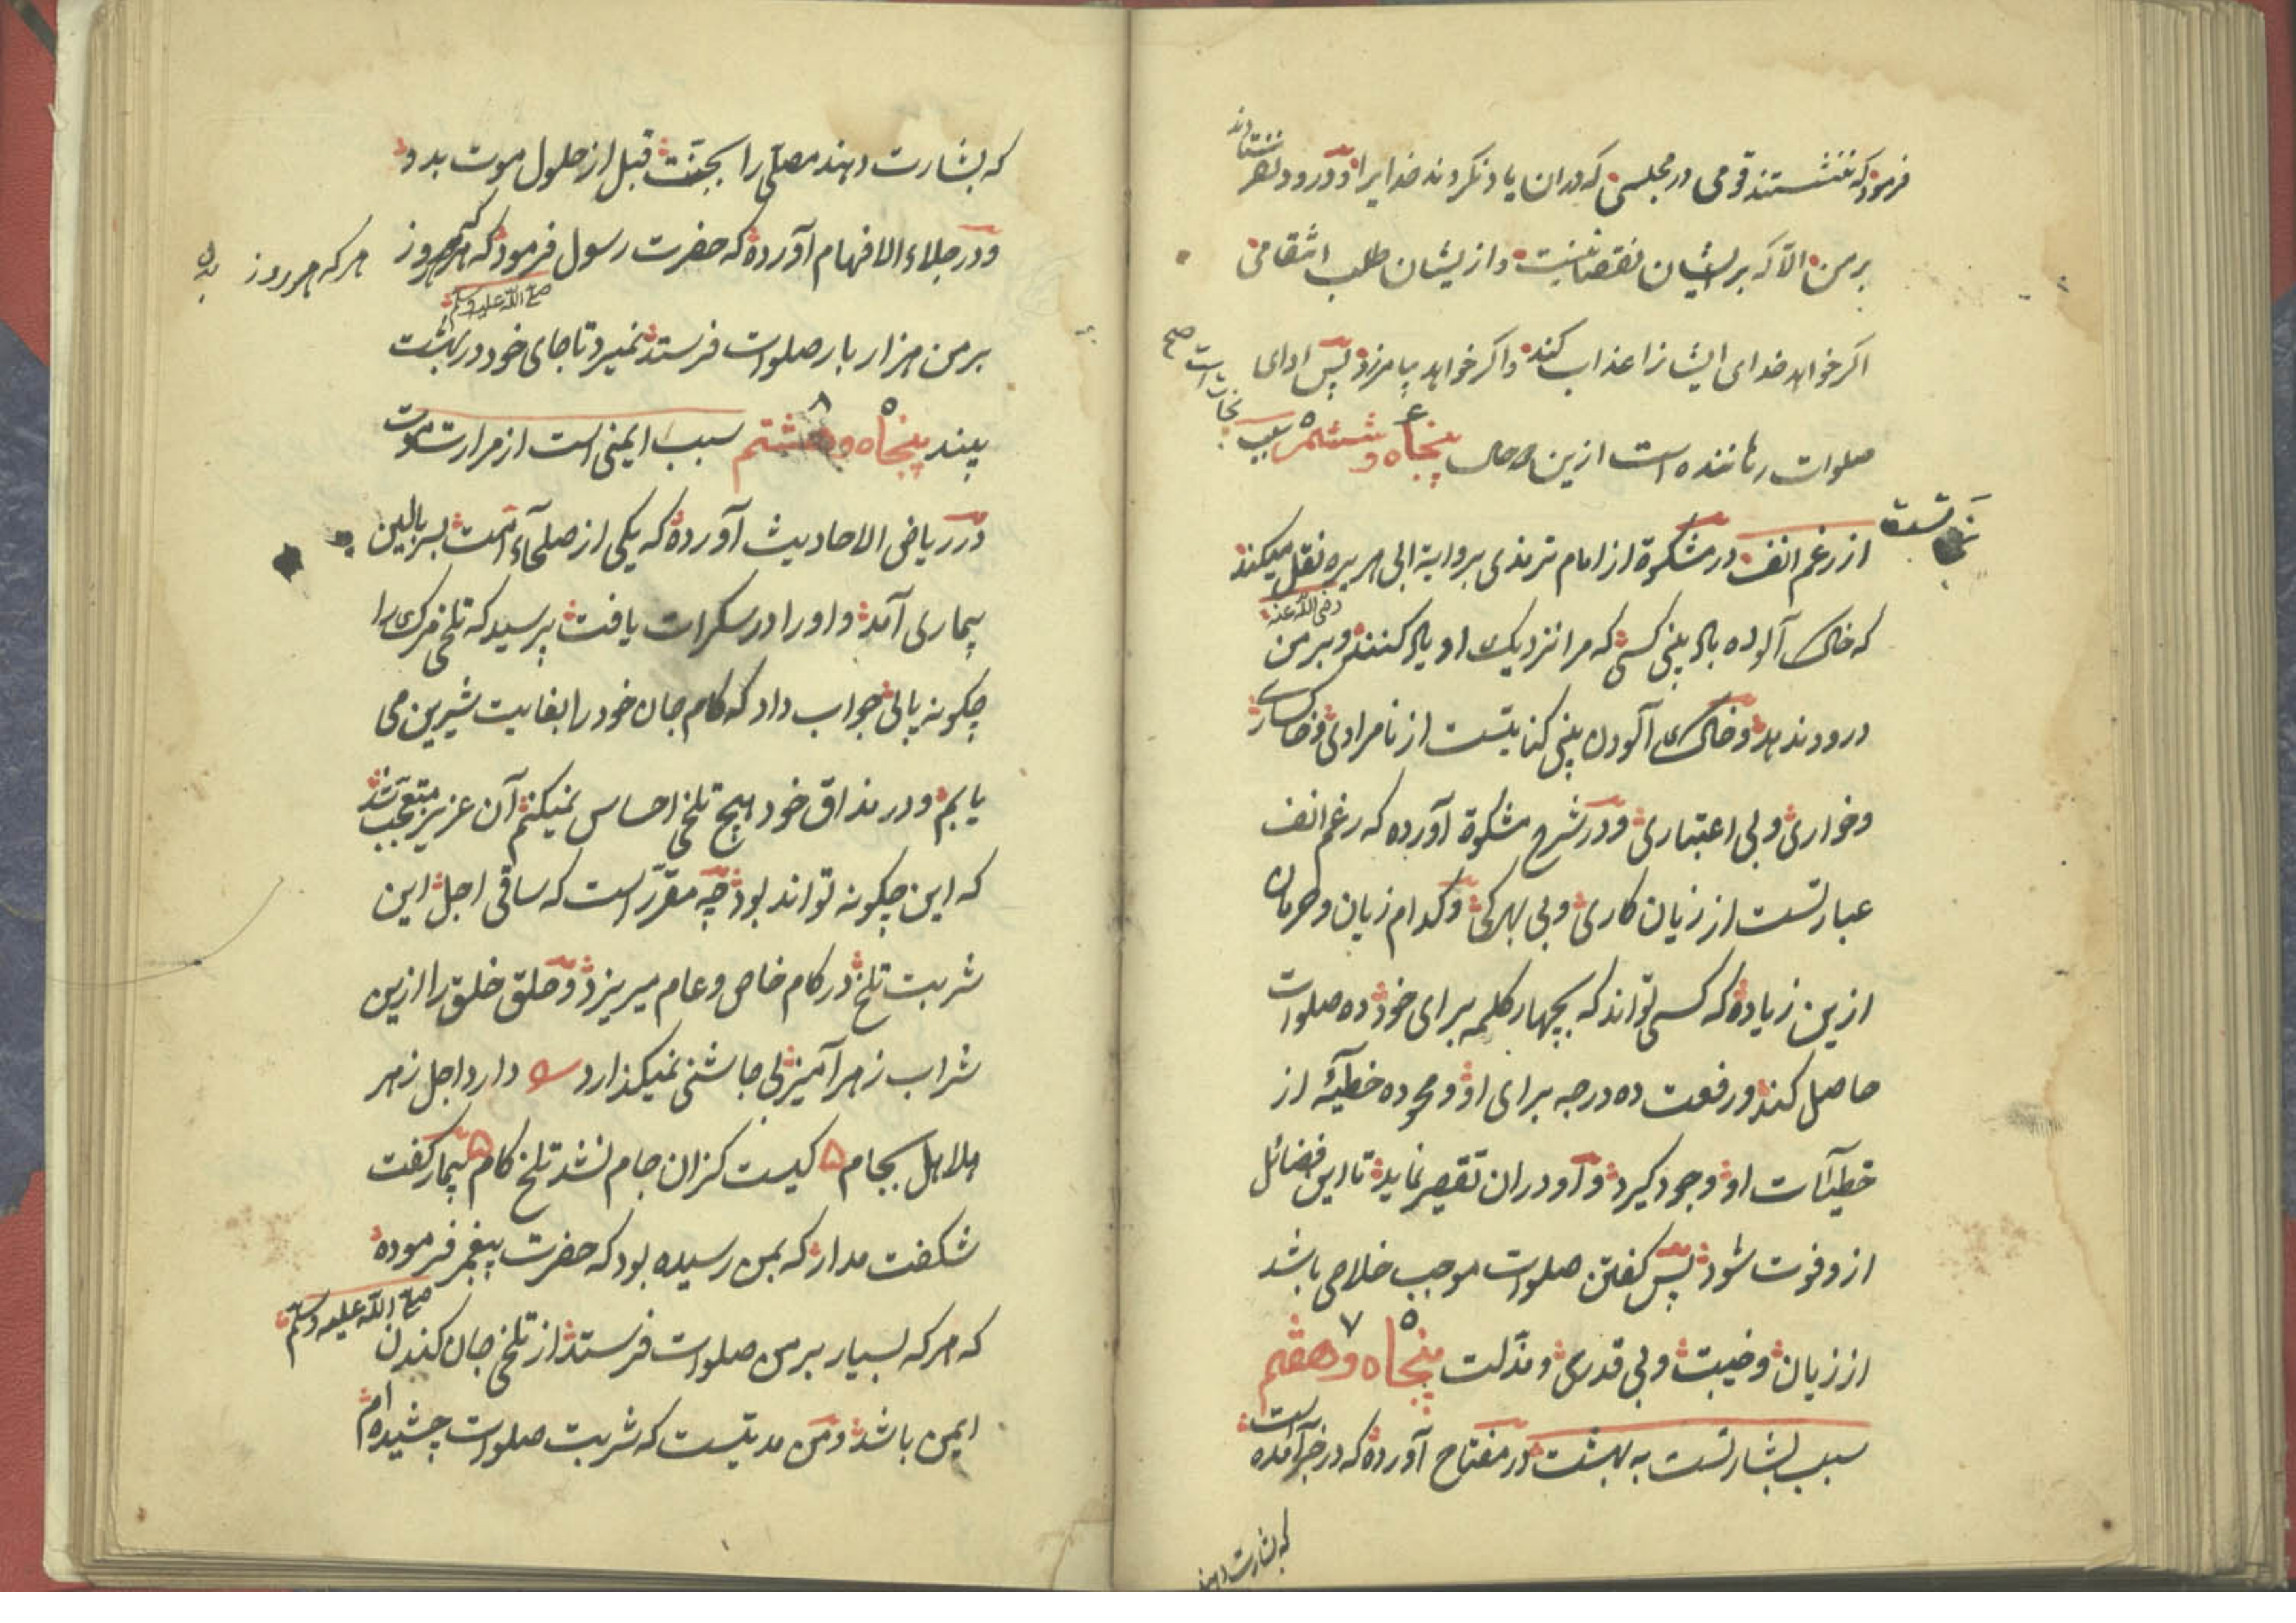 فرمود که ننشستند قومی در مجلسی که دران یاد نکردند خدایرا و درود نفرستادند
بر من الا که بر ایشان نقصانیست و از یشان طلب انتقامی
اکر خواهد خدای ایشانرا عذاب کند و اکر خواهد بیامرزد پس ادای
صلوات رهاننده است ازین حال پنجاه و ششم سبب
نجات است صح
از رغم انف در مشکوة از امام ترمذی بروایة ابی هریره نقل میکند
رضی الله عنه
که خاک آلوده باد بینی کسی که مرا نزدیک او یاد کنند و بر من
درود ندهد و خاک آلودن بینی کنایتست از نامرادی و خاکساری
و خواری و بی اعتباری و در شرح مشکوة آورده که رغم انف
عبارتست از زیان کاری و بی بهرکی و کدام زیان و حرمان
ازین زیاده که کسی تواند که بچهار کلمه برای خود ده صلوات
حاصل کند و رفعت ده درجه برای او و محو ده خطیئه از
خطیآات او وجود کیرد و او دران تقصیر نماید تا این فضائل
ازو فوت شود پس کفتن صلوات موجب خلاصی باشد
از زیان و خیبت و بی قدری و مذلت پنجاه و هفتم
سبب بشارتست به بهشت در مفتاح آورده که در خبر آمده است
که بشارت دهند
که بشارت دهند مصلی را بجنت قبل از حلول موت بدو
و در جلاء الافهام آورده که حضرت رسول فرمود که هر که هر روز
هر که هر روز
صلی الله علیه وسلم
بر من هزار بار صلوات فرستد نمیرد تا جای خود در بهشت
بیند پنجاه و هشتم سبب ایمنی است از مرارت موت
در ریاض الاحادیث آورده که یکی از صلحاء امت بر بالین
بیماری آمد و او را در سکرات یافت پرسید که تلخی مرک را
چکونه یابی جواب داد که کام جان خود را بغایت شیرین می
یابم و در مذاق خود هیچ تلخی احساس نمیکنم آن عزیز متعجب شد
که این چکونه تواند بود چه مقرر است که ساقی اجل این
شربت تلخ در کام خاص و عام میریزد و حلق خلق را ازین
شراب زهر آمیز بی چاشنی نمیکذارد دارد اجل زهر
هلاهل بجام کیست کزان جام نشد تلخ کام بیمار کفت
شکفت مدار که بمن رسیده بود که حضرت پیغمبر فرموده
صلی الله علیه وسلم
که هر که بسیار بر من صلوات فرستد از تلخی جان کندن
ایمن باشد و من مدتیست که شربت صلوات چشیده ام